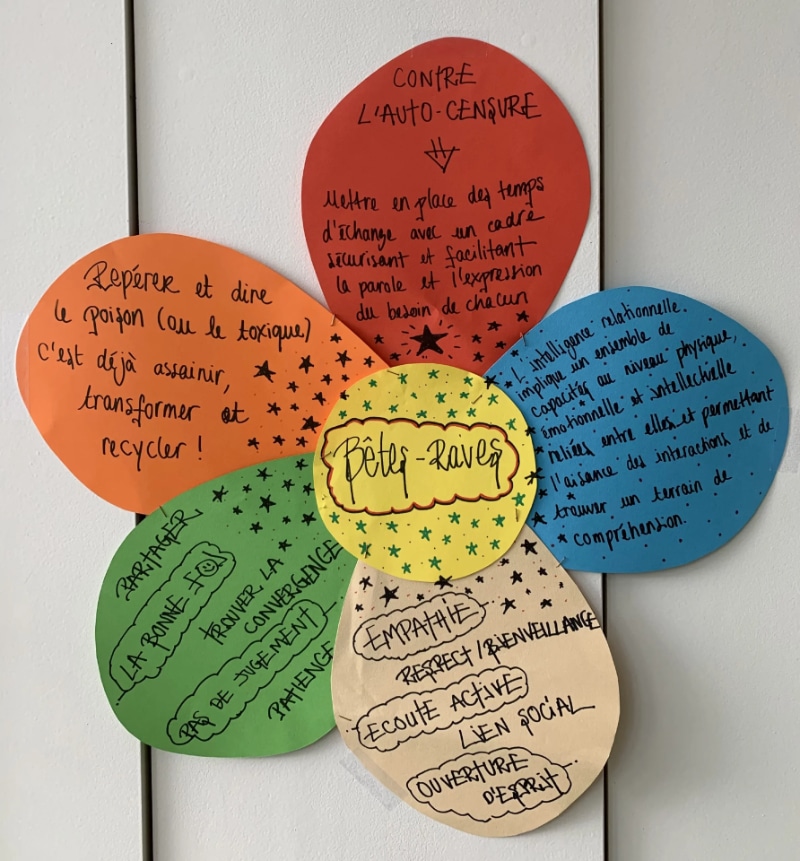 CONTRE
L'AUTO-CENSURE
Mettre en place des temps
d'échange avec un cadre
sécurisant et facilitant
la parole et l'expression
du besoin de chacun
Repérer et dire
le poison (ou le toxique)
c'est déjà assainir,
transformer et
recycler !
L'intelligence relationnelle.
implique un ensemble de
capacités au niveau physique,
émotionnelle et intellectuelle
reliées entre elles et permettant
l'aisance des interactions et de
trouver un terrain de
compréhension.
Bêtes-Raives
PARTAGER
LA BONNE FOI
TROUVER LA
CONVERGENCE
PAS DE JUGEMENT
PATIENCE
EMPATHIE
RESPECT/BIENVEILLANCE
ECOUTE ACTIVE
LIEN SOCIAL
OUVERTURE
D'ESPRIT